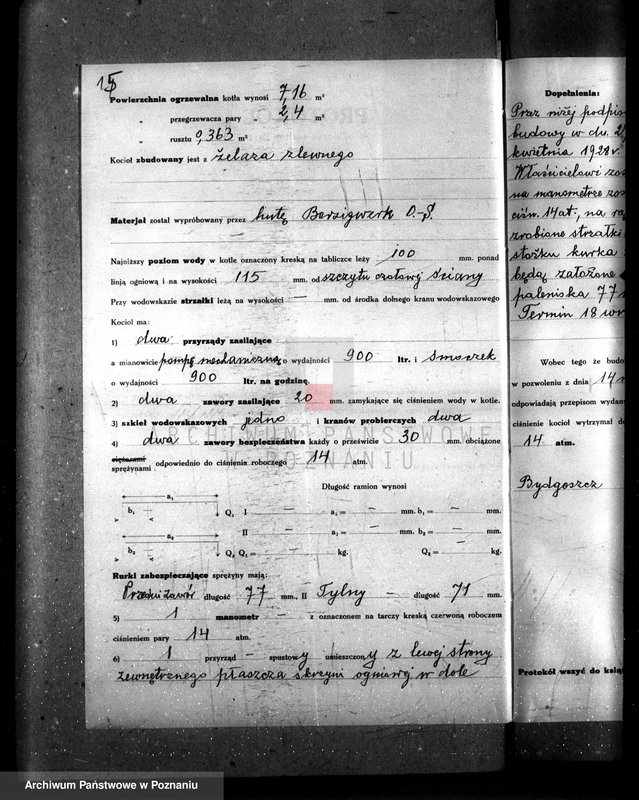 15
Powierzchnia ogrzewalna kotła wynosi 7,16 m²
„ przegrzewacza pary „ 2,4 m²
„ rusztu 0,363 m²
Kocioł zbudowany jest z żelaza zlewnego
Materjał został wypróbowany przez hutę Borsigwerk O.-Ś.
Najniższy poziom wody w kotle oznaczony kreską na tabliczce leży 100 mm. ponad
linją ogniową i na wysokości 115 mm. od szczytu czołowej ściany
Przy wodowskazie strzałki leżą na wysokości — mm. od środka dolnego kranu wodowskazowego
Kocioł ma:
1) dwa przyrządy zasilające
a mianowicie pompę mechaniczną o wydajności 900 ltr. i smoczek
o wydajności 900 ltr. na godzinę.
2) dwa zawory zasilające 20 mm. zamykające się ciśnieniem wody w kotle.
3) szkieł wodowskazowych jedno i kranów probierczych dwa
4) dwa zawory bezpieczeństwa każdy o prześwicie 30 mm. obciążone
ciężarami
sprężynami odpowiednio do ciśnienia roboczego 14 atm.
Długość ramion wynosi
a₁
b₁ Q₁ I — a₁ = — mm. b₁ = — mm.
a₂ II — a₂ = — mm. b₂ = — mm.
b₂ Q₂ Q₁ = — kg. Q₂ = — kg.
Rurki zabezpieczające sprężyny mają:
Przedni zawór długość 77 mm., II Tylny — długość 71 mm.
5) 1 manometr — z oznaczonem na tarczy kreską czerwoną roboczem
ciśnieniem pary 14 atm.
6) 1 przyrząd — spustowy umieszczony z lewej strony
zewnętrznego płaszcza skrzyni ogniowej w dole
Dopełnienia:
Przez niżej podpis
budowy w dn. 2
kwietnia 1928 r.
Właścicielowi zos
na manometrze zos
ciśn. 14 at., na
zrobione strzałki
stożku kurka
będą założone
paleniska 77
Termin 18
Wobec tego że budo
w pozwoleniu z dnia 14
odpowiadają przepisom wydan
ciśnienie kocioł wytrzymał do
14 atm.
Bydgoszcz
Protokół wszyć do ksią
CENTRUM PAŃSTWOWE
W POZNANIU
Archiwum Państwowe w Poznaniu